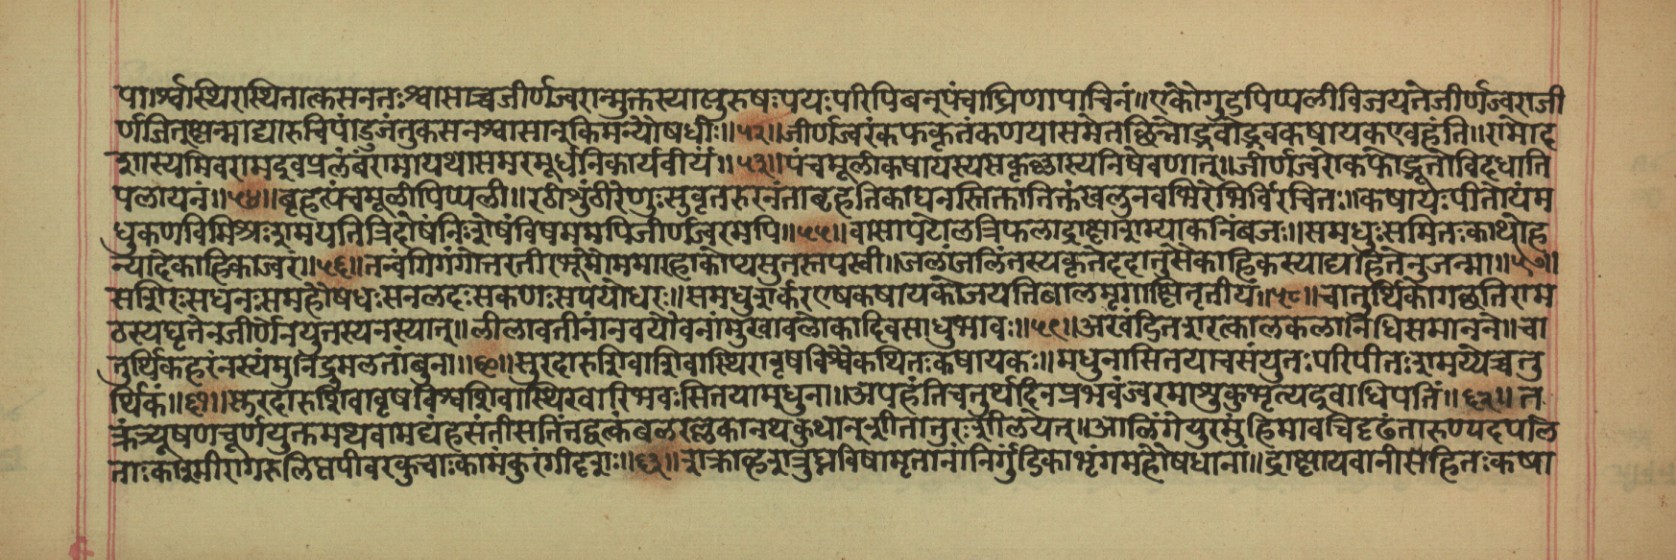 पार्श्वास्थिरास्थितात्कसनतःश्वासाच्चजीर्णज्वरान्मुक्तस्यात्पुरुषःपयःपरिपिबन्पंचांघ्रिणापाचितं॥एकोगुडपिप्पलीविजयतेजीर्णज्वराजी
र्णजित्तृष्णन्माद्यारुचिपांडुजंतुकसनश्वासान्किमन्यौषधीः॥५२॥जीर्णज्वरंकफकृतंकणयासमेतश्छिन्नोद्भवोद्भवकषायकएवहंति॥रामोद
शास्यमिवराममद्रुवप्रलंबंरामोयथासमरमूर्धनिकार्यवीर्यं॥५३॥पंचमूलीकषायस्यसकृष्णास्यनिषेवणात्॥जीर्णज्वरोकफोद्भूतोविदधाति
पलायनं॥५४॥बृहत्पंचमूलीपिप्पली॥रठीश्रुंठीरेणुःसुवृततरुरनंताबृहतिकाघनस्तिक्तातिक्तंखलुनवभिरेभिर्विरचितः॥कषायःपीतोयंम
धुकणविमिश्रःशमयतित्रिदोषंनिःशेषंविषममपिजीर्णज्वरमपि॥५५॥वासापटोलत्रिफलाद्राक्षाशम्याकनिंबजः॥समधुःसमितःक्वाथोह
न्यादेकाहिकाज्वरं॥५६॥तन्वंगिगंगोत्तरतीरभूमौममारहाकोप्यसुतस्तपस्वी॥जलांजलिंतस्यकृतेददातुसैकाहिकस्याद्यहितेनुजन्मा॥५७॥
सशिरःसघनःसमहौषधःसनलदःसकणःसपयोधरः॥समधुशर्करएषकषायकोजयतिबालमृगाक्षितृतीयं॥५८॥चातुर्थिकोगछतिराम
ठस्यघृतेनजीर्णेनयुतस्यनस्यात्॥लीलावतीनांनवयौवनांमुखावलोकादिवसाधुभावः॥५९॥अखंडितशरत्कालकलानिधिसमानने॥चा
तुर्थिकहरंनस्यंमुनिद्रुमलतांबुना॥६०॥सुरदारुशिवाशिवास्थिरावृषविश्वैःकथितःकषायकः॥मधुनासितयाचसंयुतःपरिपीतःशमयेच्चतु
र्थिकं॥६१॥सुरदारुशिवावृषविश्वशिवास्थिरवारिभवःसितयामधुना॥अपहंतिचतुर्थदिनप्रभवंज्वरमाश्रुकुभृत्यदवाधिपतिं॥६२॥त
क्रंत्र्यूषणचूर्णयुक्तमथवामद्यंहसंतीसतिंतद्वत्कंबलरल्लकानथकुथान्शीतातुरःशीलयेत्॥आलिंगेयुरमुंहिमावचिदृढंतारुण्यदपलि
ताःकाश्मीरागरुलिप्तपीवरकुचाःकामंकुरंगीदृशः॥६३॥शक्राव्हशत्रुघ्नविषामृतानांनिर्गुंडिकाभृंगमहौषधानां॥द्राक्षायवानीसहितःकषा